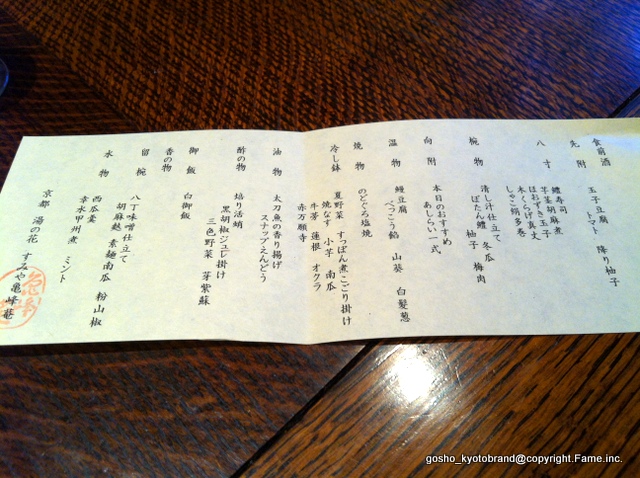 食前酒
先附　玉子豆腐　トマト　降り柚子
八寸　鱧寿司
芋茎胡麻煮
ほおずき玉子
木くらげ真丈
しゃこ絹多巻
椀物　清し汁仕立て
ぼたん鱧　冬瓜
柚子　梅肉
向附　本日のおすすめ
あしらい一式
温物　鰻豆腐
べっこう餡　山葵　白髪葱
焼物　のどぐろ塩焼
冷し鉢　夏野菜　すっぽん煮こごり掛け
焼なす　小芋　南瓜
牛蒡　蓮根　オクラ
赤万願寺
油物　太刀魚の香り揚げ
スナップえんどう
酢の物　焙り活蛸
黒胡椒ジュレ掛け
三色野菜　芽紫蘇
御飯　白御飯
香の物
留椀　八丁味噌仕立て
胡麻麩　素麺南瓜　粉山椒
水物　西瓜羹
幸水甲州煮　ミント
京都　湯の花　すみや亀峰菴
gosho_kyotobrand@copyright.Fame.inc.